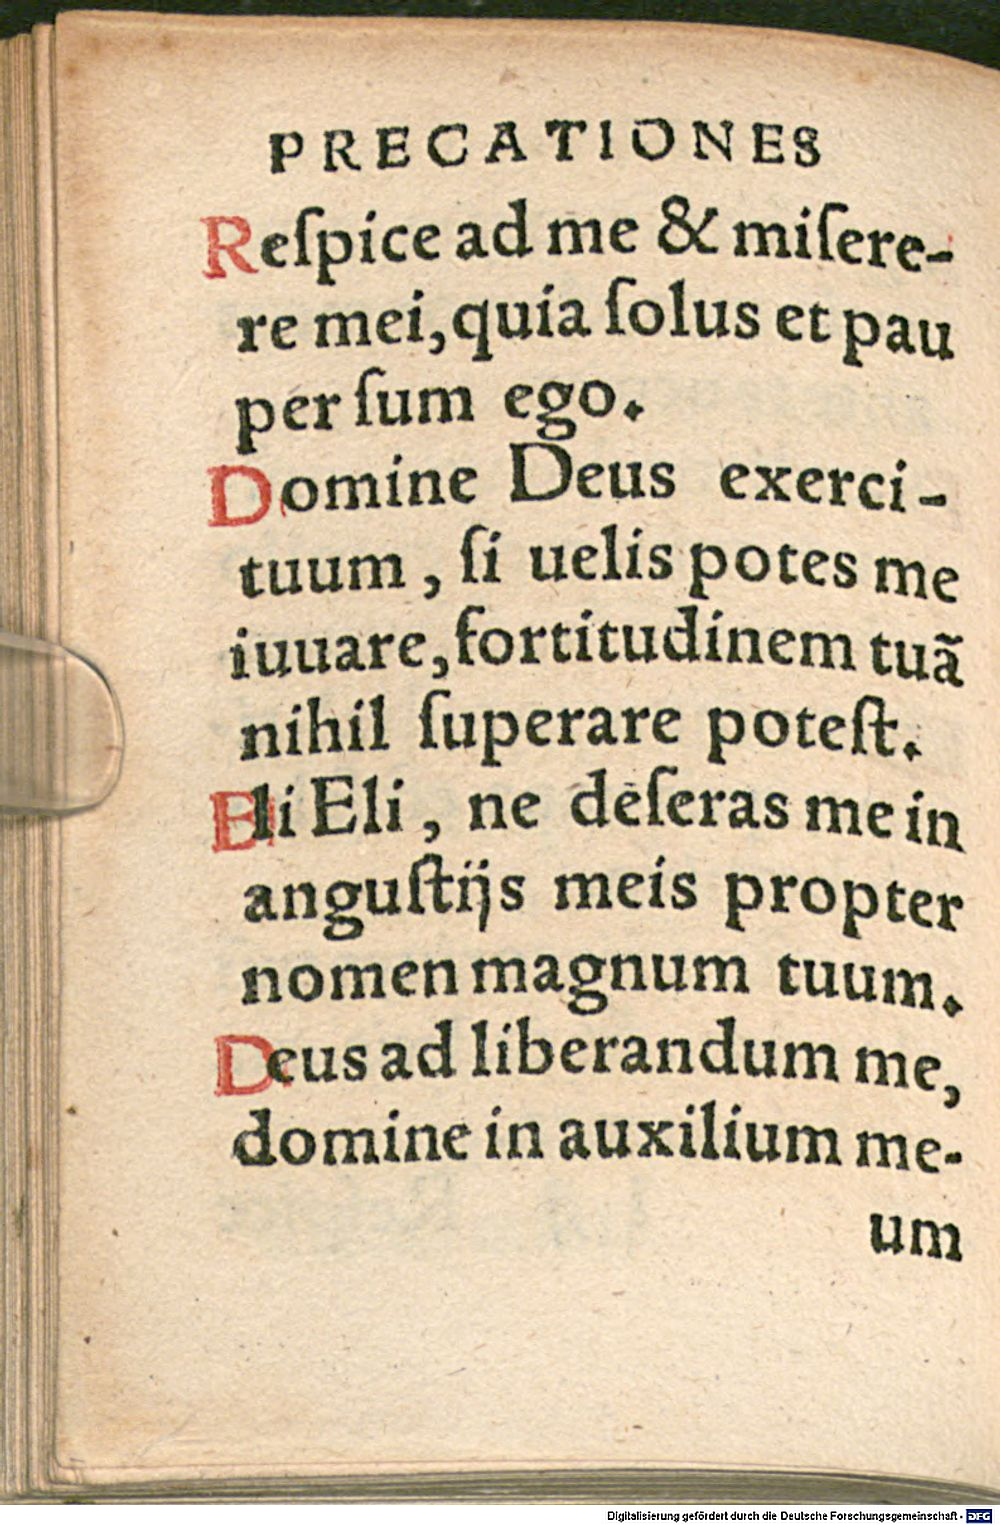 PRECATIONES
Reſpice ad me & miſere-
re mei, quia ſolus et pau
per ſum ego.
Domine Deus exerci-
tuum, ſi uelis potes me
iuuare, fortitudinem tuã
nihil ſuperare poteſt.
Eli Eli, ne deſeras me in
anguſtijs meis propter
nomen magnum tuum.
Deus ad liberandum me,
domine in auxilium me-
um
Digitalisierung gefördert durch die Deutsche Forschungsgemeinschaft - DFG